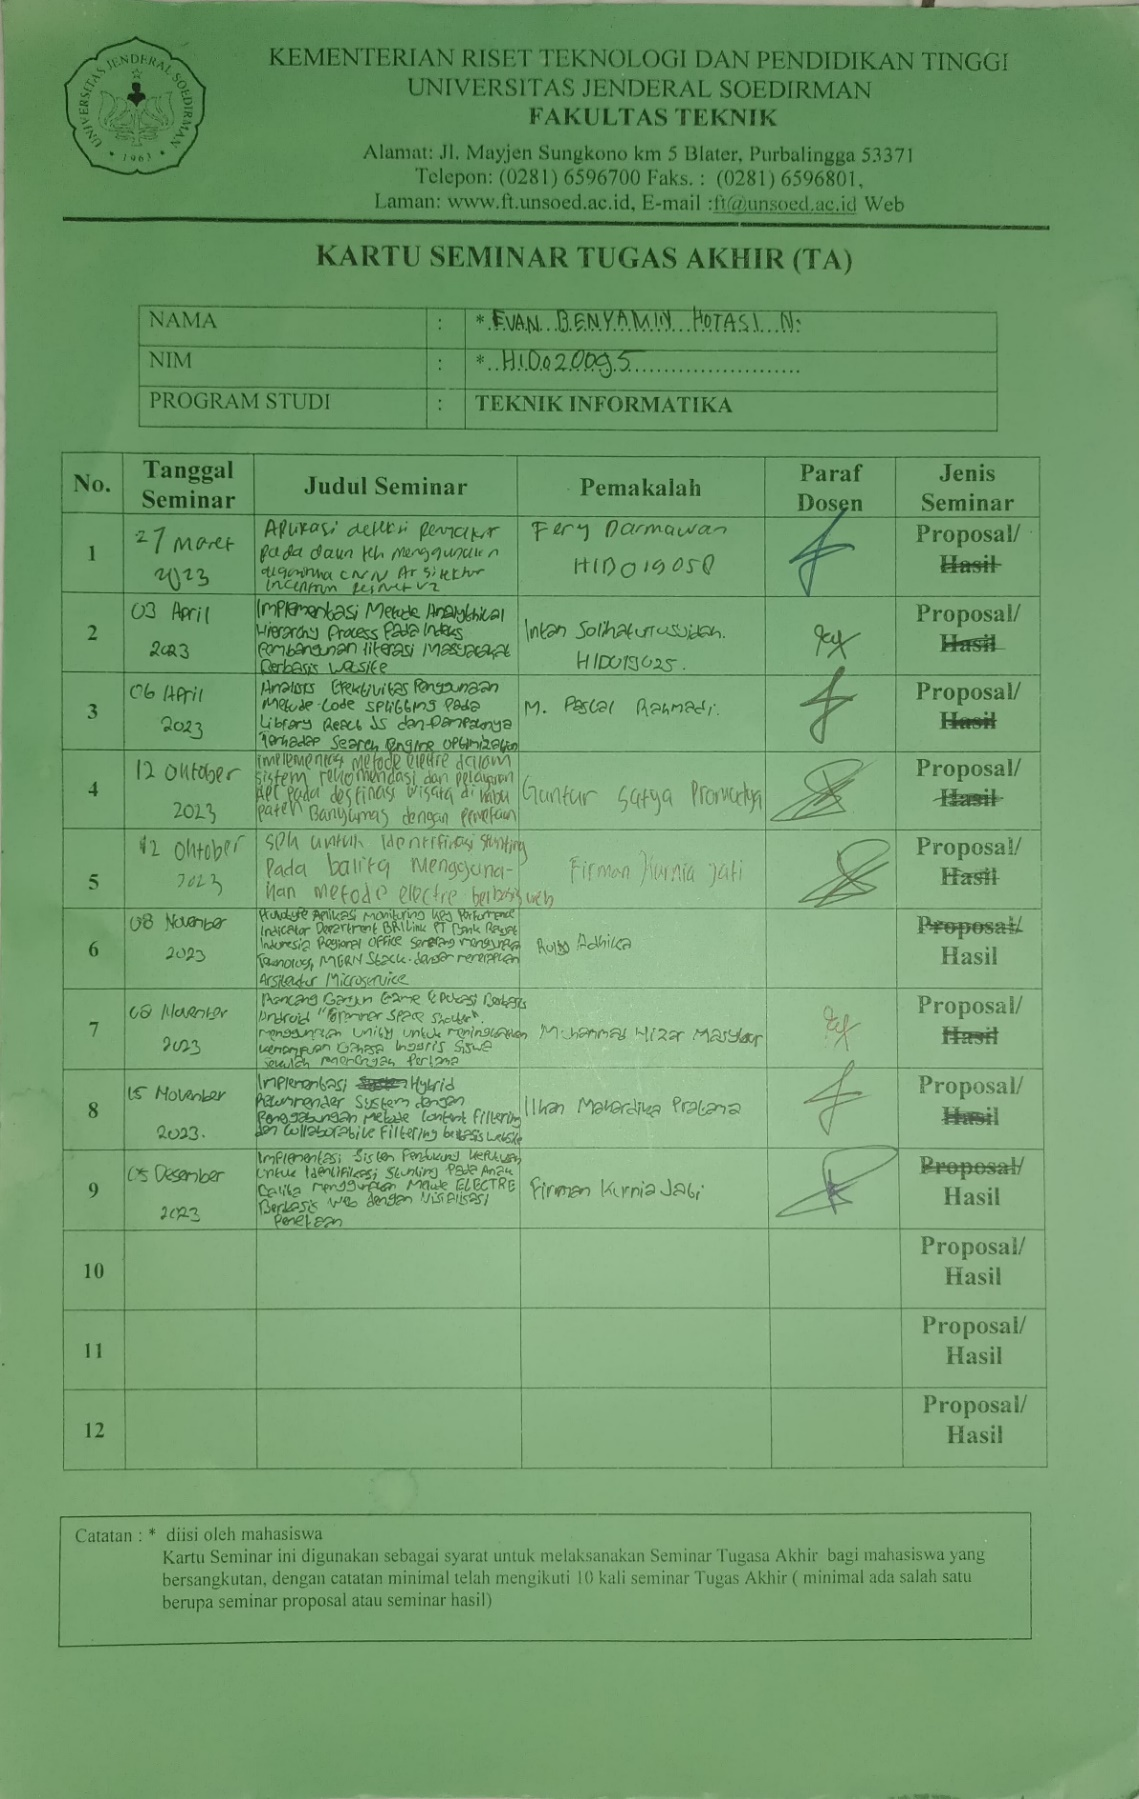 UNIVERSITAS JENDERAL SOEDIRMAN
• 1963 •
KEMENTERIAN RISET TEKNOLOGI DAN PENDIDIKAN TINGGI
UNIVERSITAS JENDERAL SOEDIRMAN
FAKULTAS TEKNIK
Alamat: Jl. Mayjen Sungkono km 5 Blater, Purbalingga 53371
Telepon: (0281) 6596700 Faks. : (0281) 6596801,
Laman: www.ft.unsoed.ac.id, E-mail :ft@unsoed.ac.id Web
KARTU SEMINAR TUGAS AKHIR (TA)
NAMA : * EVAN BENYAMIN HOTASI N.
NIM : * H1D020095
PROGRAM STUDI : TEKNIK INFORMATIKA
No. Tanggal Seminar Judul Seminar Pemakalah Paraf Dosen Jenis Seminar
1 27 Maret 2023
Aplikasi deteksi penyakit
pada daun teh menggunakan
algoritma CNN Arsitektur
Inception Resnet V2
Fery Darmawan
H1D019058
Proposal/
Hasil
2 03 April 2023
Implementasi Metode Analythical
Hierarchy Process Pada Indeks
Pembangunan literasi Masyarakat
Berbasis Website
Intan
H1D019025.
Proposal/
Hasil
3 06 April 2023
Analisis Efektivitas Penggunaan
Metode Code Splitting Pada
Library React JS dan Dampaknya
Terhadap Search Engine Optimization
M. Pascal Rahmadi.
Proposal/
Hasil
4 12 Oktober 2023
metode electre dalam
sistem rekomendasi dan
API pada destinasi wisata di kabu
paten Banyumas dengan pemetaan
Guntur Satya
Proposal/
Hasil
5 12 Oktober 2023
SPK untuk identifikasi stunting
Pada balita Mengguna-
kan metode electre berbasis web
Firman Kurnia Jati
Proposal/
Hasil
6 08 November 2023
Prototype Aplikasi Monitoring Key Performance
Indicator Department BRILink PT Bank Rakyat
Indonesia Regional Office Semarang menggunakan
Teknologi MERN Stack dengan menerapkan
Arsitektur Microservice
Adhika
Proposal/
Hasil
7 08 November 2023
Rancang Bangun Game Edukasi Berbasis
Android "Grammar Space Shooter"
menggunakan Unity untuk meningkatkan
kemampuan Bahasa Inggris Siswa
Sekolah Menengah Pertama
Muhammad Hizar
Proposal/
Hasil
8 15 November 2023.
Implementasi Hybrid
Recommender System dengan
Penggabungan Metode Content Filtering
dan Collaborative Filtering berbasis website
Ilhan Mahardika Pratama
Proposal/
Hasil
9 05 Desember 2023
Implementasi Sistem Pendukung Keputusan
Untuk Identifikasi Stunting Pada Anak
Balita menggunakan Metode ELECTRE
Berbasis Web dengan Visualisasi
Pemetaan
Firman Kurnia Jati
Proposal/
Hasil
10 Proposal/
Hasil
11 Proposal/
Hasil
12 Proposal/
Hasil
Catatan : * diisi oleh mahasiswa
Kartu Seminar ini digunakan sebagai syarat untuk melaksanakan Seminar Tugasa Akhir bagi mahasiswa yang
bersangkutan, dengan catatan minimal telah mengikuti 10 kali seminar Tugas Akhir ( minimal ada salah satu
berupa seminar proposal atau seminar hasil)